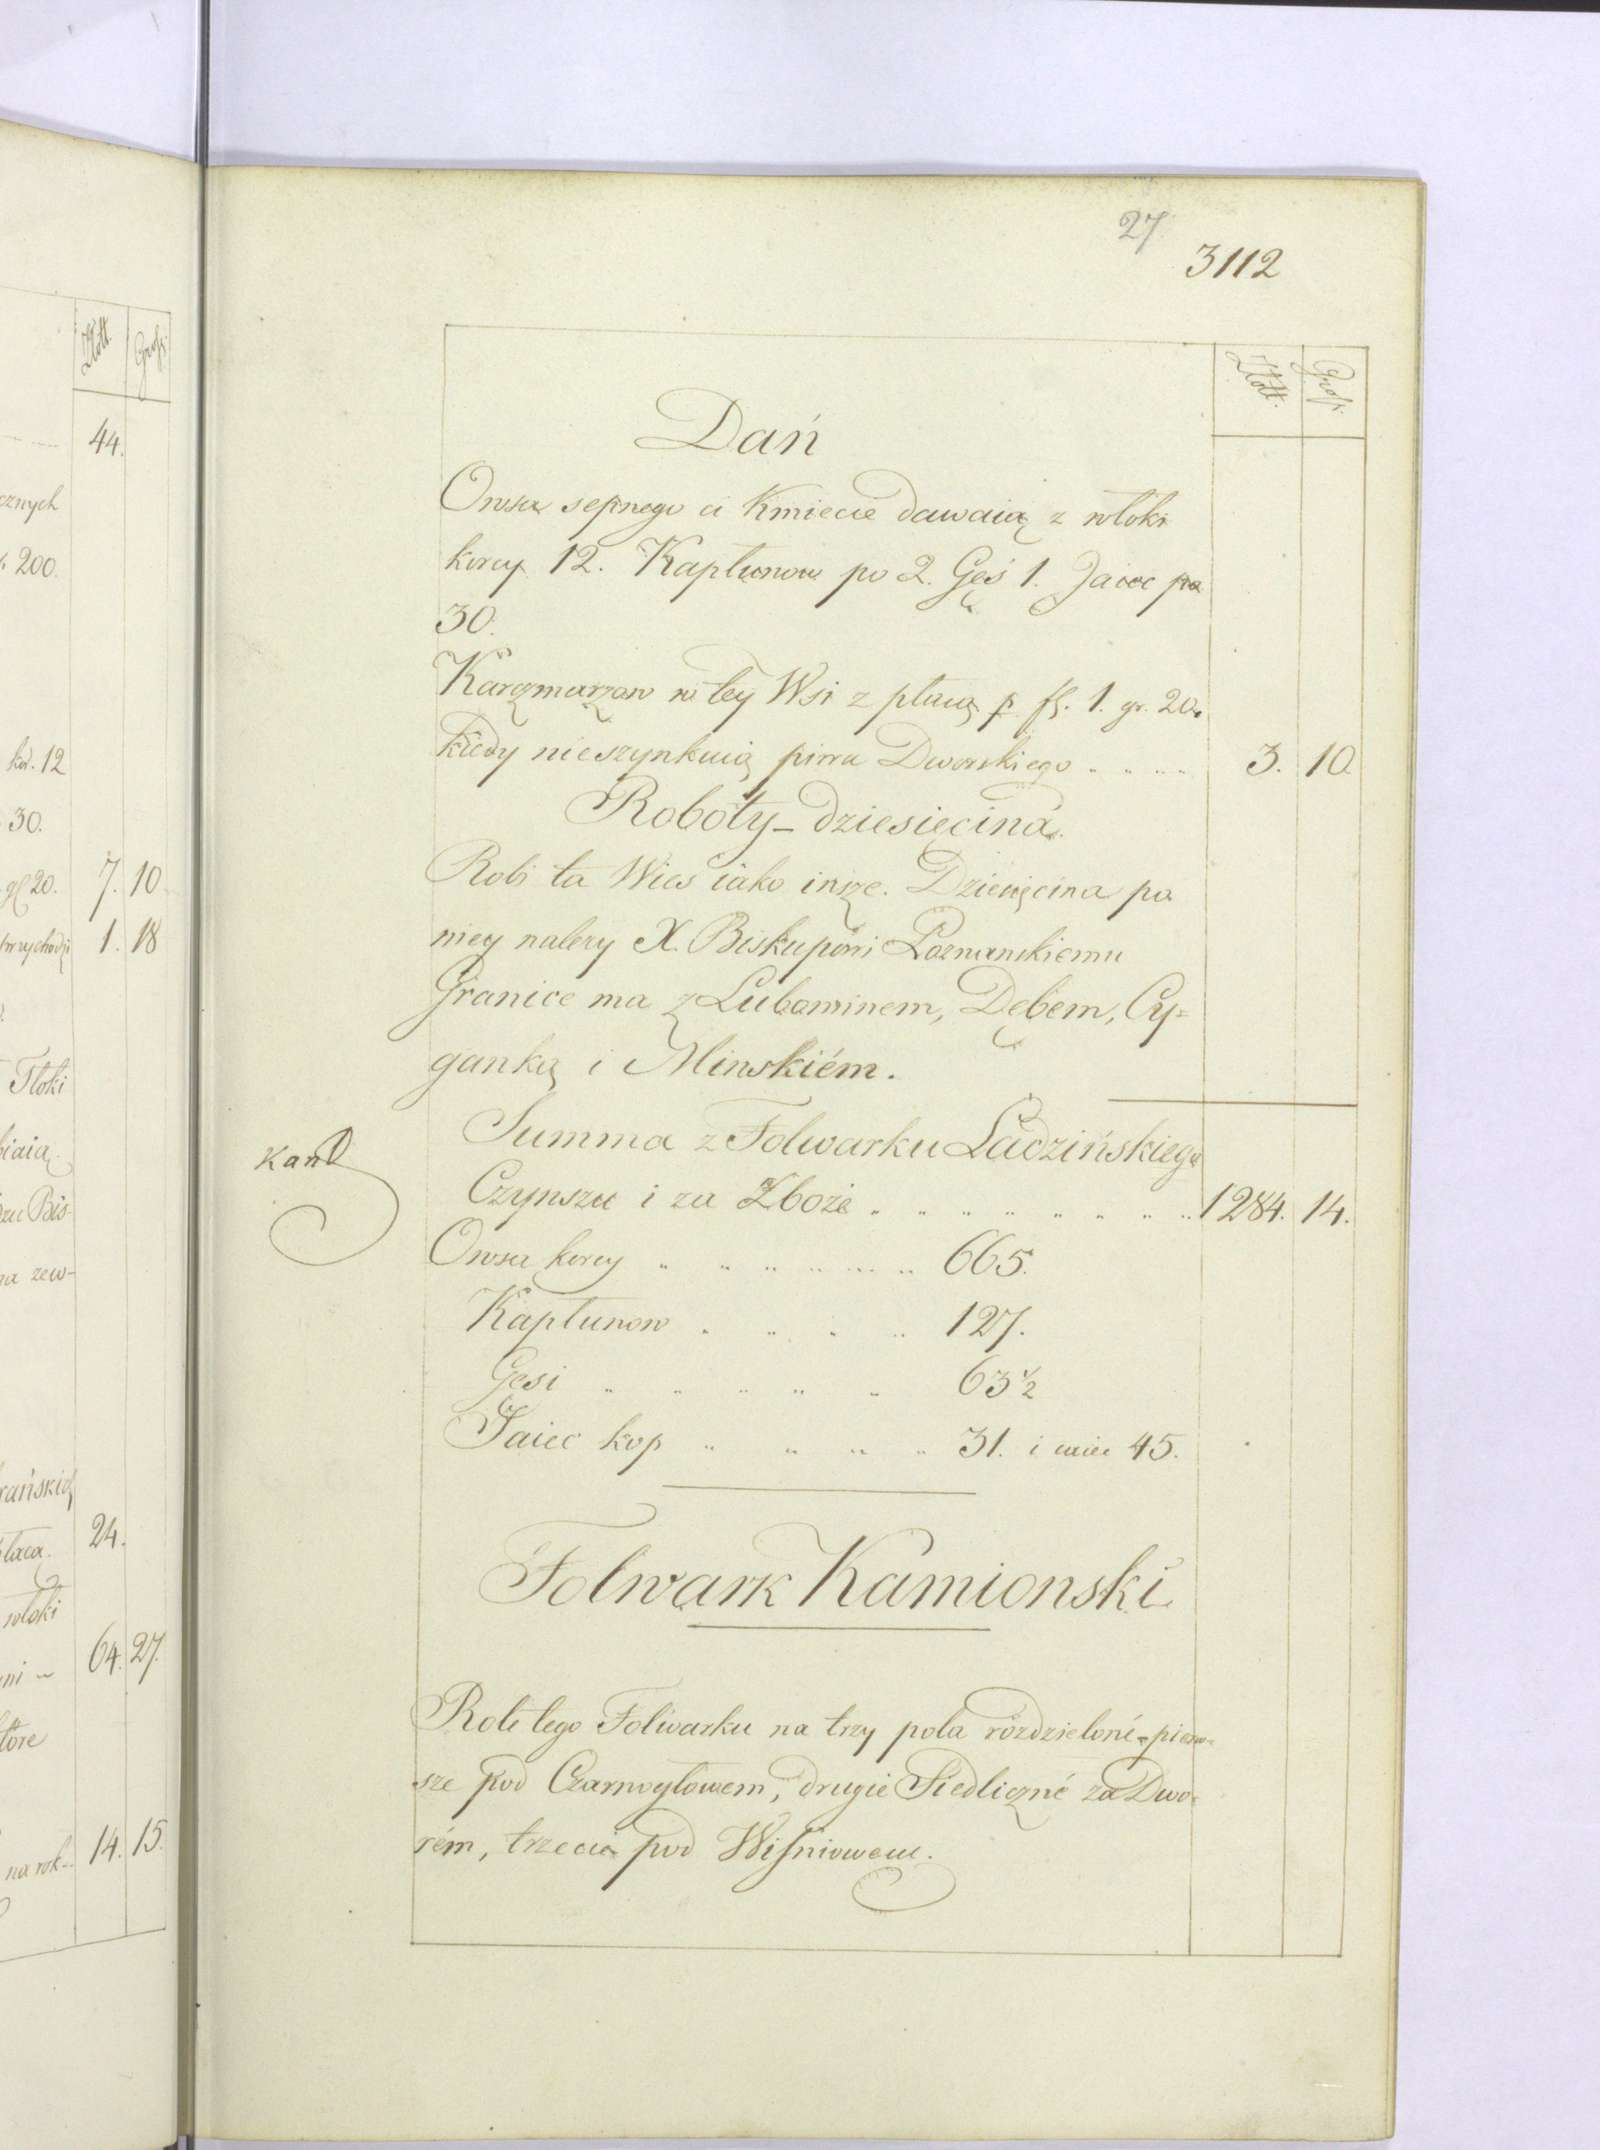 44.
cznych
200.
kor. 12
30.
gr 20. 7. 10
przychodzi 1. 18
Tłoki
biaią.
Bis-
na zew-
rańskich
płacą. 24.
włoki
64. 27.
które
na rok 14. 15.
27
3112
Złott. Grosz.
Dań
Owsa sepnego ci Kmiecie dawaią z włoki
korcy 12. Kapłunow po 2. Gęś 1. Jaiec po
30.
Karczmarzow w tey Wsi 2 płacą p fl. 1. gr. 20.
kiedy nieszynkuią piwa Dworskiego .... 3. 10.
Roboty - dziesięcina.
Robi ta Wieś iako insze. Dziesięcina po
niey nalezy X. Biskupowi Poznanskiemu
Granice ma z Lubominem, Dębem, Cy=
ganką i Minskiém.
Summa z Folwarku Ladzińskiego
Kand
Czynszu i za Zboże ........ 1284. 14.
Owsa korcy ...... 665.
Kapłunow .... 127.
Gęsi ..... 63 1/2
Jaiec kop .... 31. i iaiec 45.
Folwark Kamionski
Role tego Folwarku na trzy pola rozdzieloné - pierw=
sze pod Czarnogłowem, drugie Siedliczné za Dwo=
rém, trzecie pod Wiśniowem.